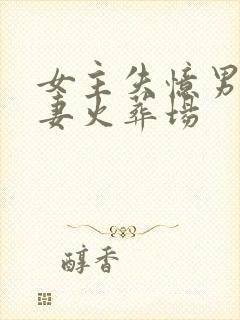 女主失憶男
妻火葬場
醇香